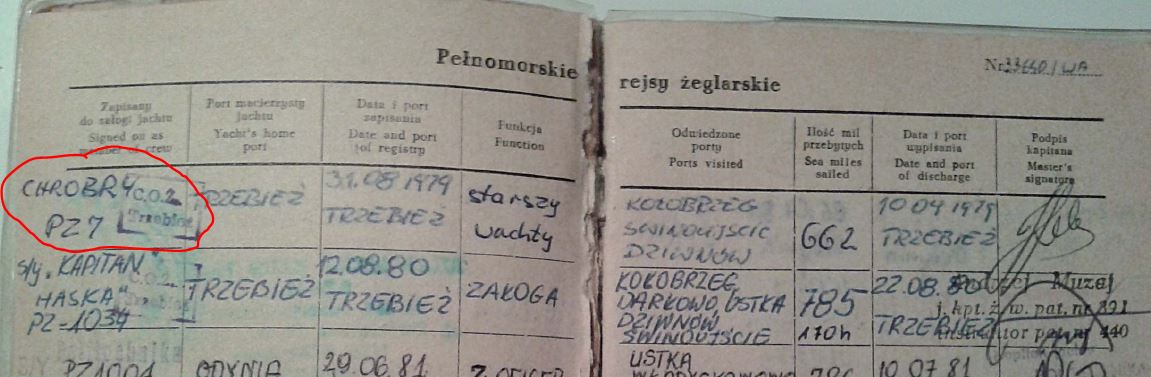 Pełnomorskie
Zapisany
do załogi jachtu
Signed on as
member of crew
Port macierzysty
jachtu
Yacht's home
port
Data i port
zapisania
Date and port
of registry
Funkcja
Function
CHROBRY C.O.Ż.
PZ 7 Trzebież
TRZEBIEŻ
31.08 1979
TRZEBIEŻ
starszy
wachty
s/y „KAPITAN
HASKA"
PZ-1034
TRZEBIEŻ
12.08.80
TRZEBIEŻ
ZAŁOGA
PZ1001
GDYNIA
29.06.81
rejsy żeglarskie
Nr
Odwiedzone
porty
Ports visited
Ilość mil
przebytych
Sea miles
sailed
Data i port
wypisania
Date and port
of discharge
Podpis
kapitana
Master's
signature
KOŁOBRZEG
ŚWINOUJŚCIE
DZIWNÓW
662
10 04 1979
TRZEBIEŻ
KOŁOBRZEG
DARŁOWO, USTKA
DZIWNÓW
ŚWINOUJŚCIE
785
170h
22.08.80
TRZEBIEŻ
Muzaj
j. kpt. ż. w. pat. nr 391
instruktor pat. nr 440
USTKA
10.07.81